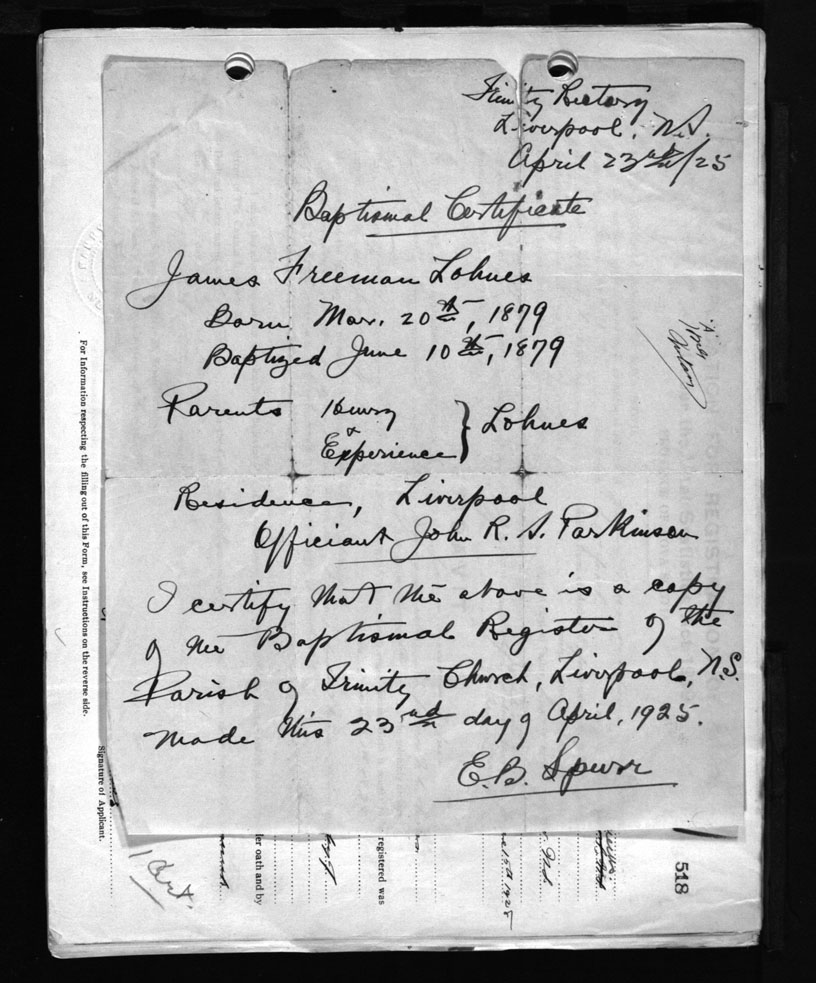 Trinity Rectory
Liverpool, N.S.
April 23rd/25
Baptismal Certificate
James Freeman Lohnes
Born Mar. 20th, 1879
Baptized June 10th, 1879
Parents Henry
&
Experience } Lohnes
Residence, Liverpool
Officiant John R. S. Parkinson
I certify that the above is a copy
of the Baptismal Register of the
Parish of Trinity Church, Liverpool, N.S.
made this 23rd day of April, 1925.
E. B. Spurr
"A"
For Information respecting the filling out of this Form, see Instructions on the reverse side.
Signature of Applicant.
1 Cert.
er oath and by
registered was
1925
518